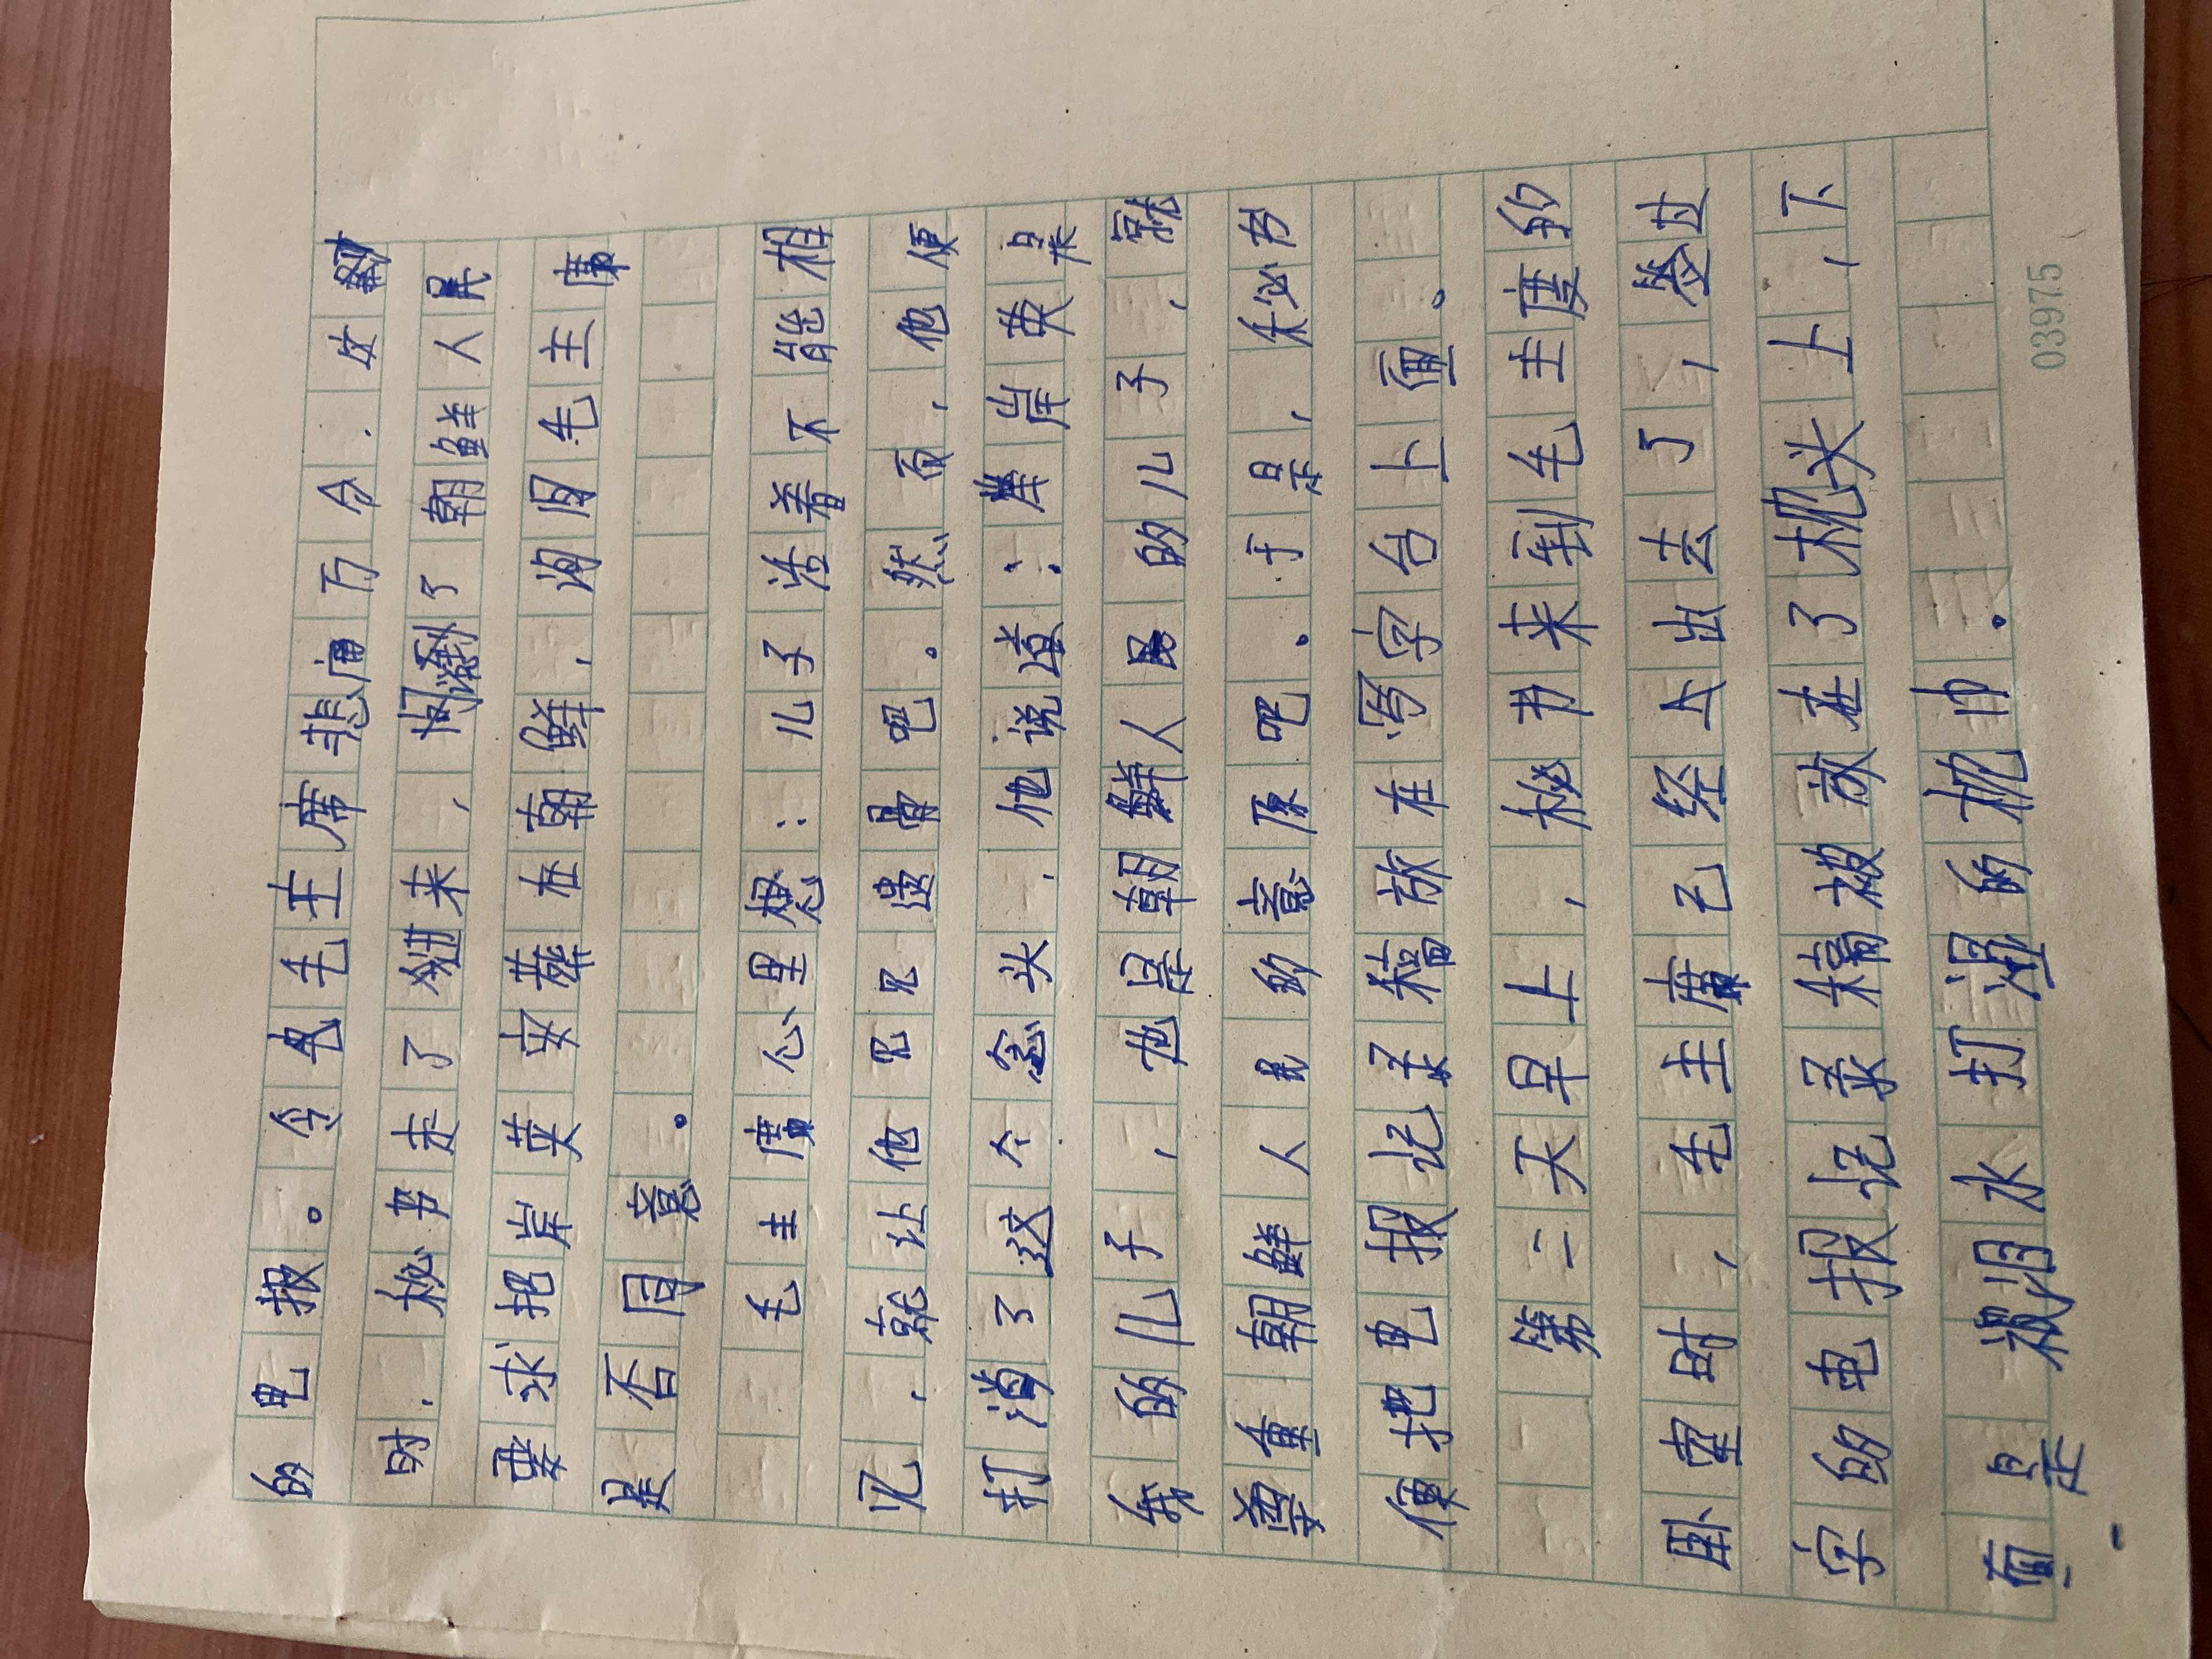 的电报。令毛主席悲痛万分.女
时.秘书走了进来,问到了朝鲜人民
要求把岸英安葬在朝鲜,询问毛主席
是否同意。
毛主席心里想:儿子活着不能相
见,就让他见见遗骨吧。然而,他便
打消了这个念头.他说道:岸英是
我的儿子,也是朝鲜人民的儿子,就
尊重朝鲜人民的意原吧。于是,秘书
便把电报记录稿放在写字台上面。
第二天早上,秘书来到毛主席的
卧室时,毛主席已经上出去了,签过
字的电报记录稿被放在了枕头上,下
面是被泪水打湿的枕巾。
03975